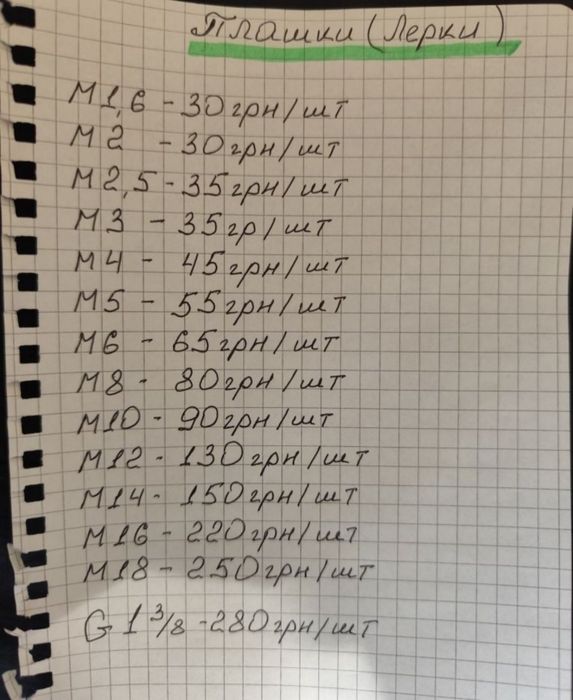 Плашки (Лерки)
М1,6 - 30грн/шт
М2 - 30грн/шт
М2,5 - 35грн/шт
М3 - 35гр/шт
М4 - 45грн/шт
М5 - 55грн/шт
М6 - 65грн/шт
М8 - 80грн/шт
М10 - 90грн/шт
М12 - 130грн/шт
М14 - 150грн/шт
М16 - 220грн/шт
М18 - 250грн/шт
G 1 3/8 - 280грн/шт